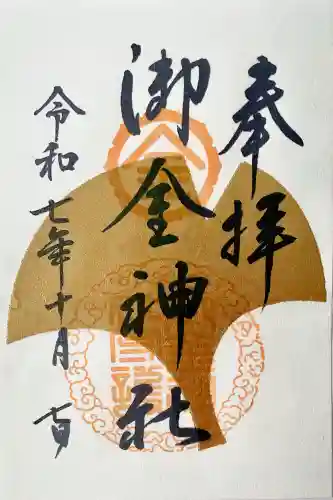 奉拝
御金神社
令和七年十月 七日